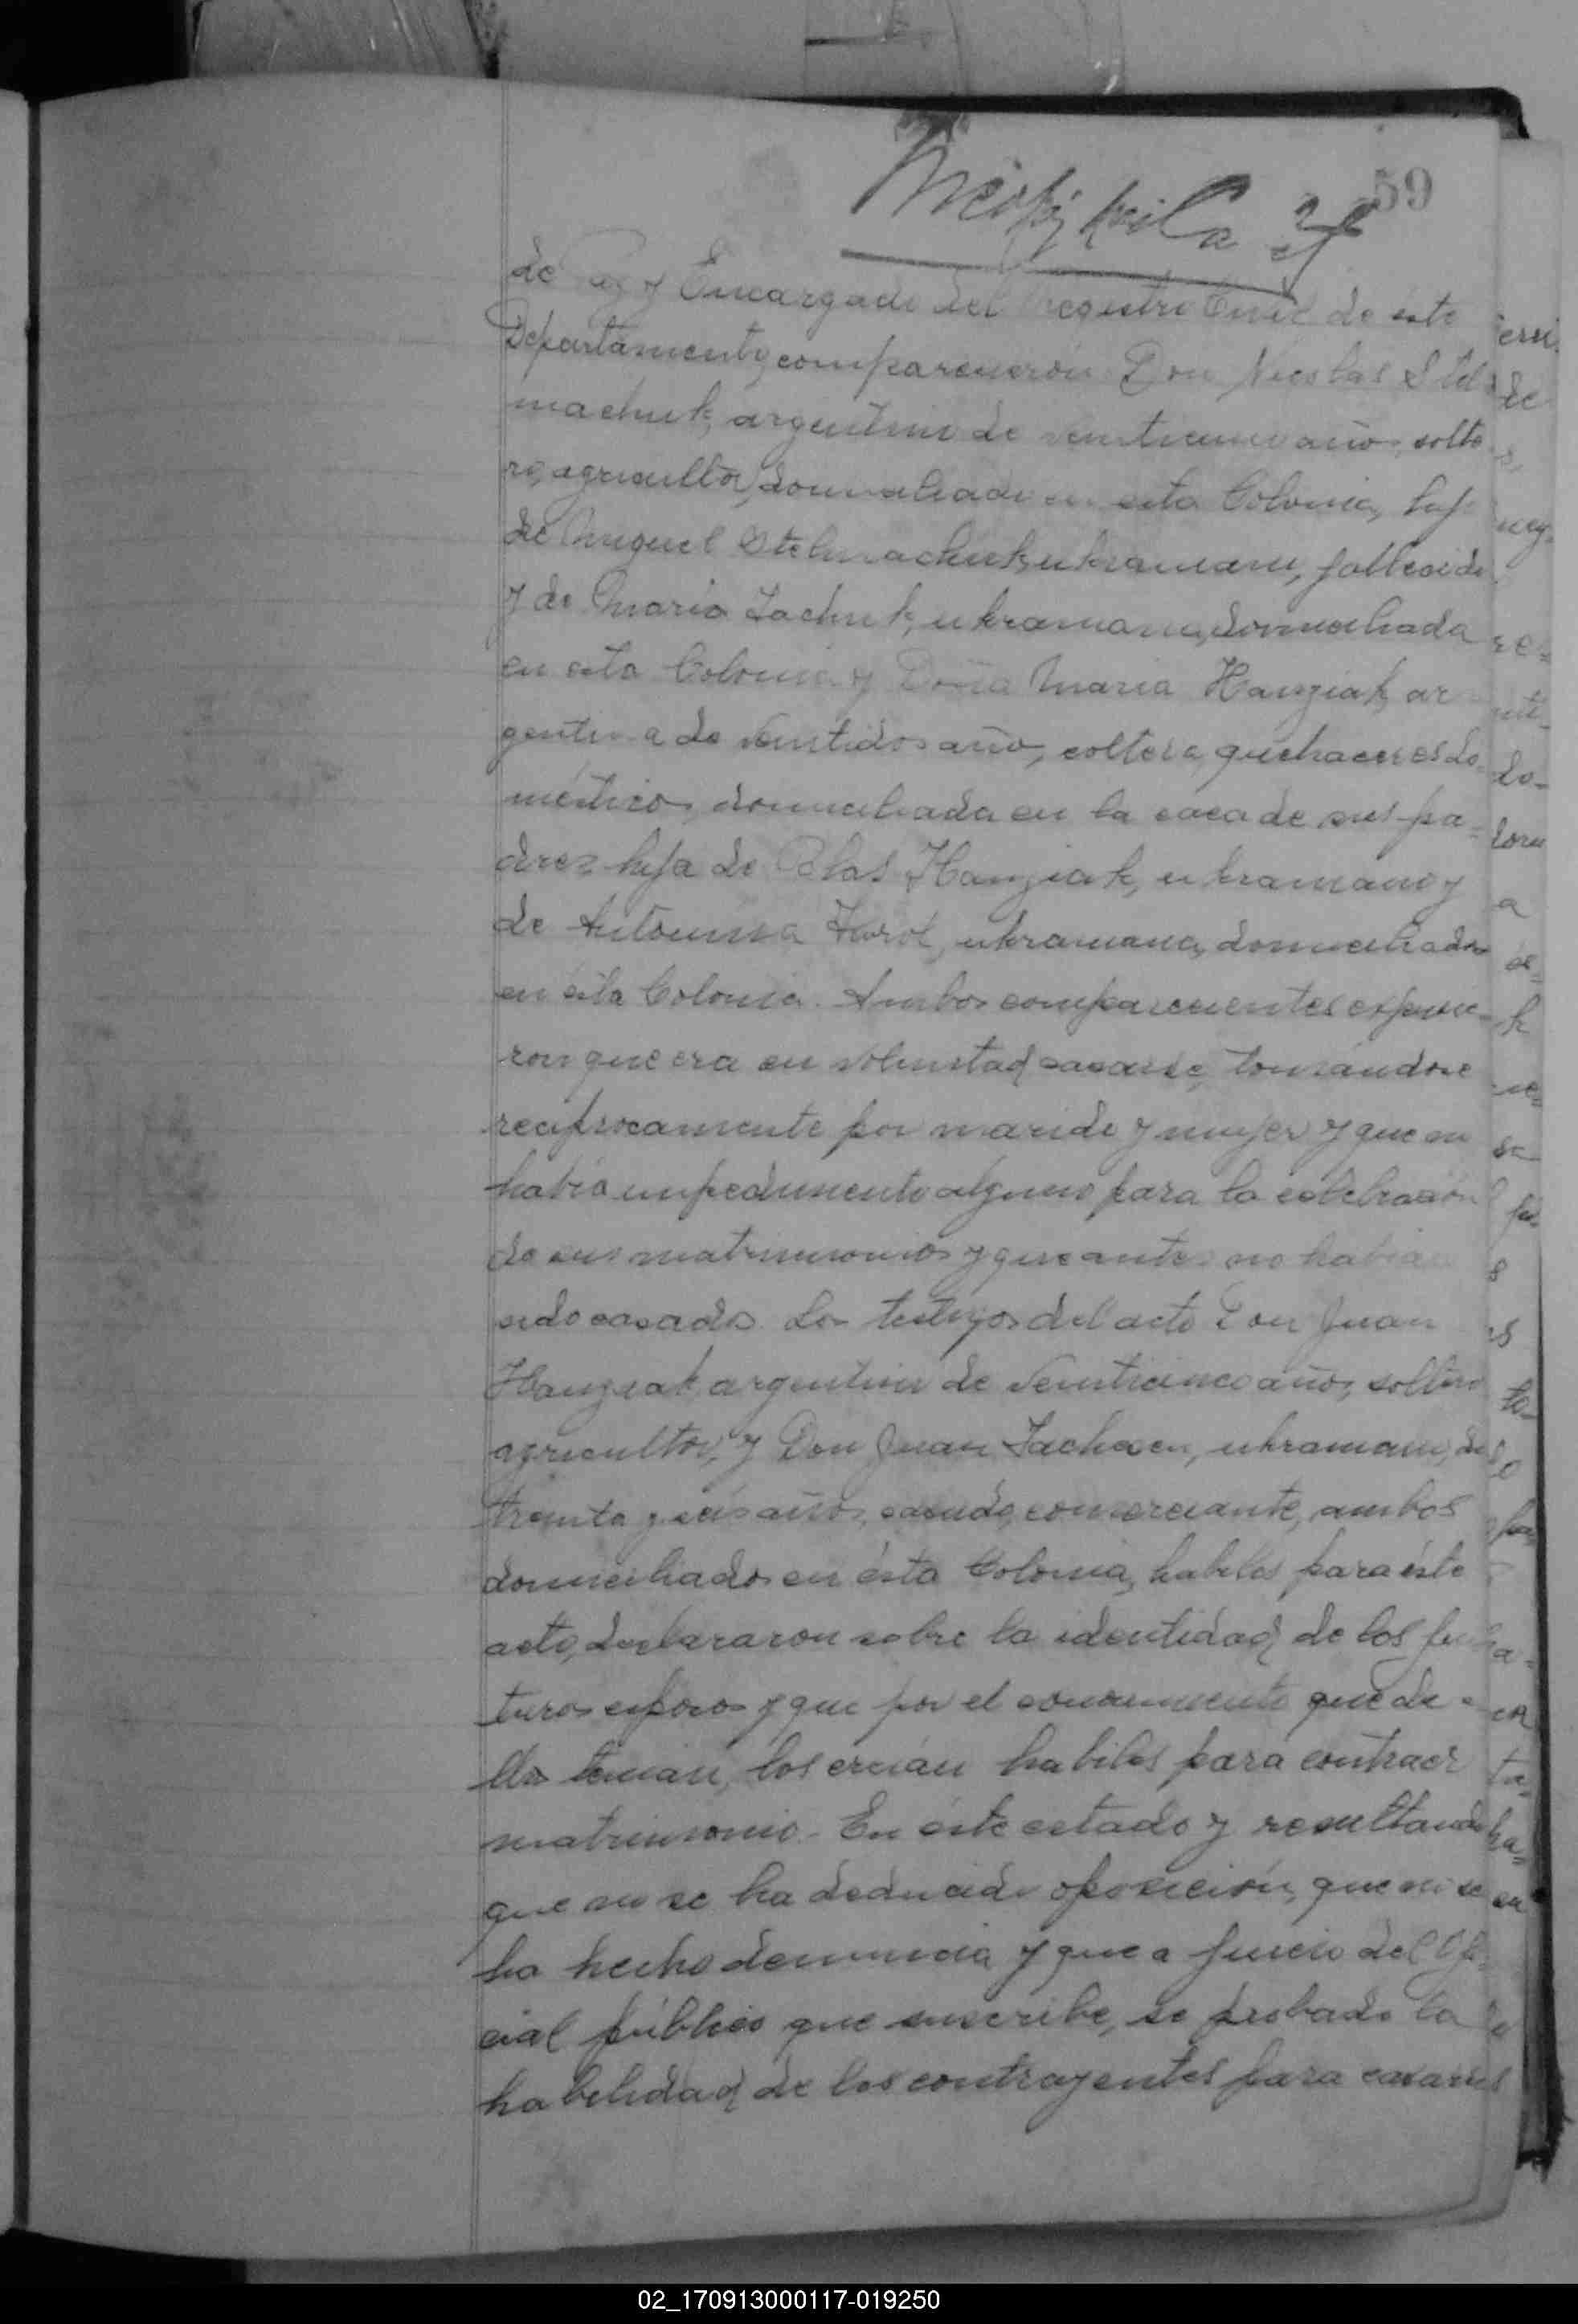 59
de Paz y Encargado del Registro Civil de este
Departamento, comparecieron Don Nicolas Stel
machuk, argentino de veinticinco años, solte
ro, agricultor, domiciliado en esta Colonia, hijo
de Miguel Stelmachuk, ukraniano, fallecido
y de Maria Zachuk, ukraniana, domiciliada
en esta Colonia y Doña Maria Hanziak, ar
gentina de veintidos años, soltera, quehaceres do-
mésticos, domiciliada en la casa de sus pa-
dres, hija de Blas Hanziak, ukraniano y
de Antonina ukraniana, domiciliados
en ésta Colonia. Ambos comparecientes expusie-
ron que era su voluntad casarse, tomándose
reciprocamente por marido y mujer y que no
había impedimento alguno para la celebración
de sus matrimonios y que antes no habian
sido casados. Los testigos del acto Don Juan
Hanziak, argentino de veinticinco años, soltero
agricultor, y Don Juan ukraniano, de
treinta y seis años, casado, comerciante, ambos
domiciliados en ésta Colonia, habiles para éste
acto, declararon sobre la identidad de los fu
turos esposos y que por el conocimiento que de e
llos tenian, los creían habiles para contraer
matrimonio.- En éste estado y resultando
que no se ha deducido oposición, que no se
ha hecho denuncia y que a juicio del Ofi-
cial público que suscribe, se probado la
habilidad de los contrayentes para casarse
02_170913000117-019250